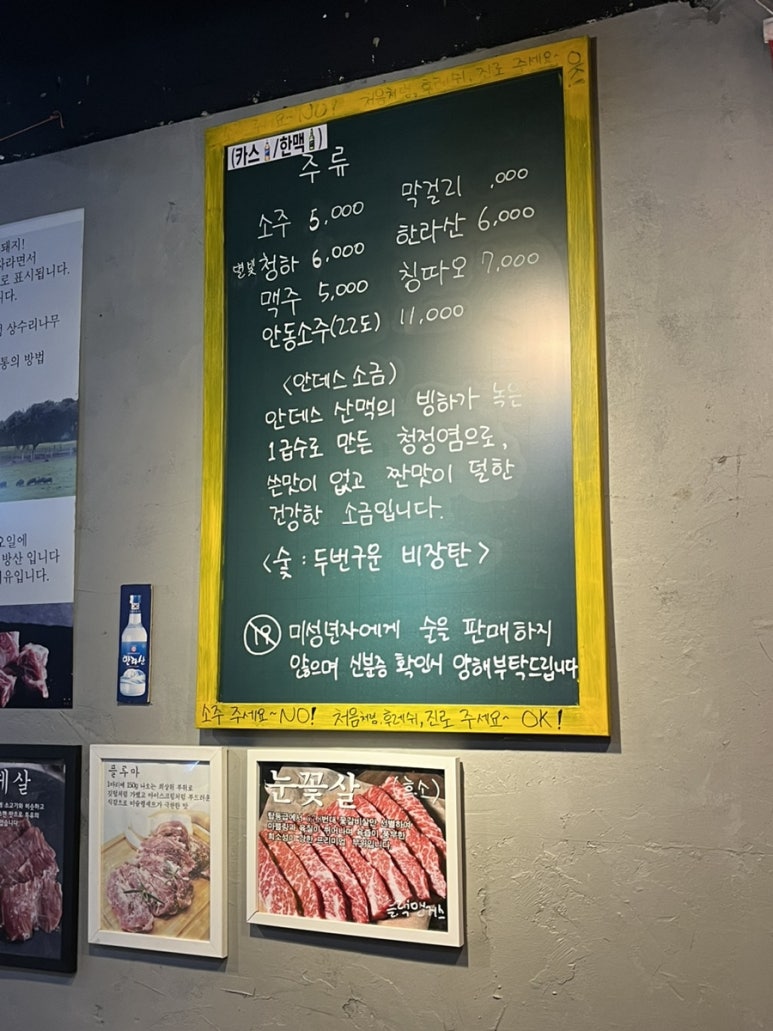 처음처럼, 후레쉬, 진로 주세요~ OK!
(카스/한맥)
주류
소주 5,000
별빛청하 6,000
맥주 5,000
안동소주(22도) 11,000
막걸리 ,000
한라산 6,000
칭따오 7,000
<안데스 소금>
안데스 산맥의 빙하가 녹은
1급수로 만든 청정염으로,
쓴맛이 없고 짠맛이 덜한
건강한 소금입니다.
<숯 : 두번구운 비장탄>
19 미성년자에게 술을 판매하지
않으며 신분증 확인시 양해부탁드립니다
소주 주세요~ NO! 처음처럼, 후레쉬, 진로 주세요~ OK!
돼지!
자라면서
로 표시됩니다.
니다.
상수리나무
통의 방법
요일에
방산 입니다
이유입니다.
한라산
살
플루마
1마리에 150g 나오는 최상위 부위로
눈꽃살 (흑소)
블랙앵거스